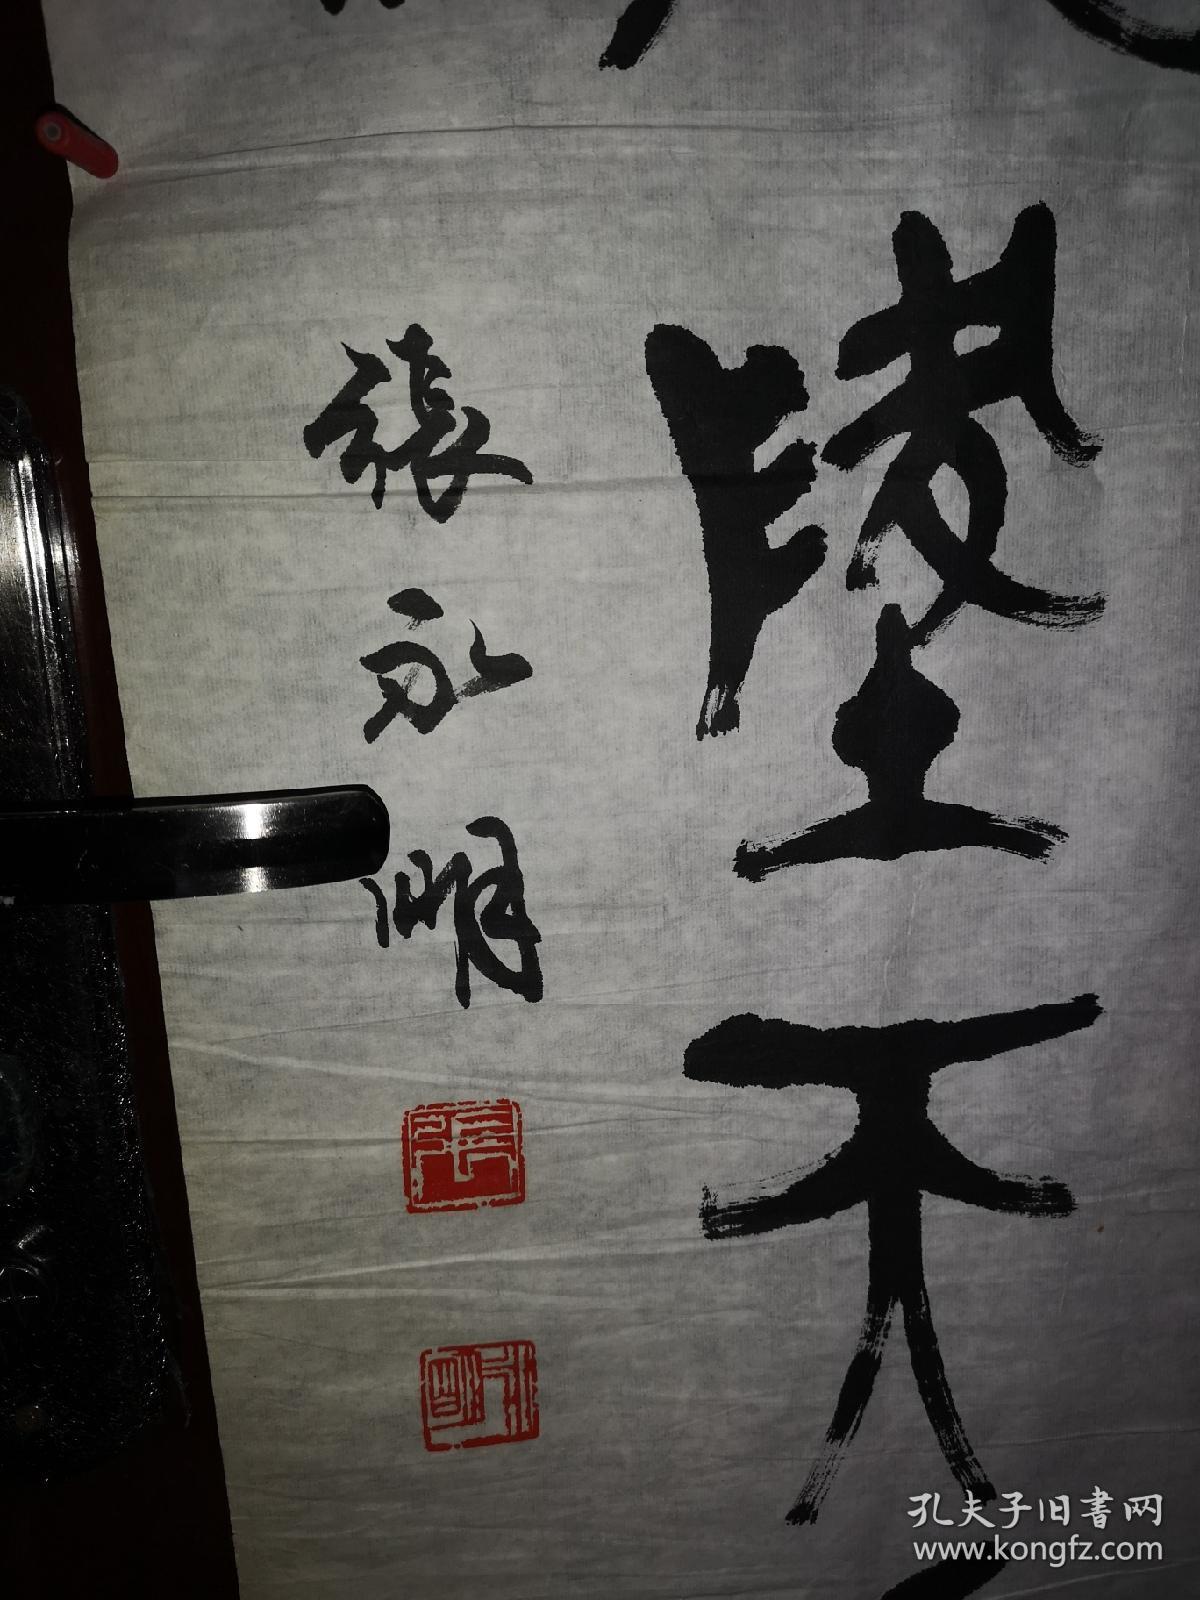 不
張永明
張
永明
孔夫子旧書网
www.kongfz.com